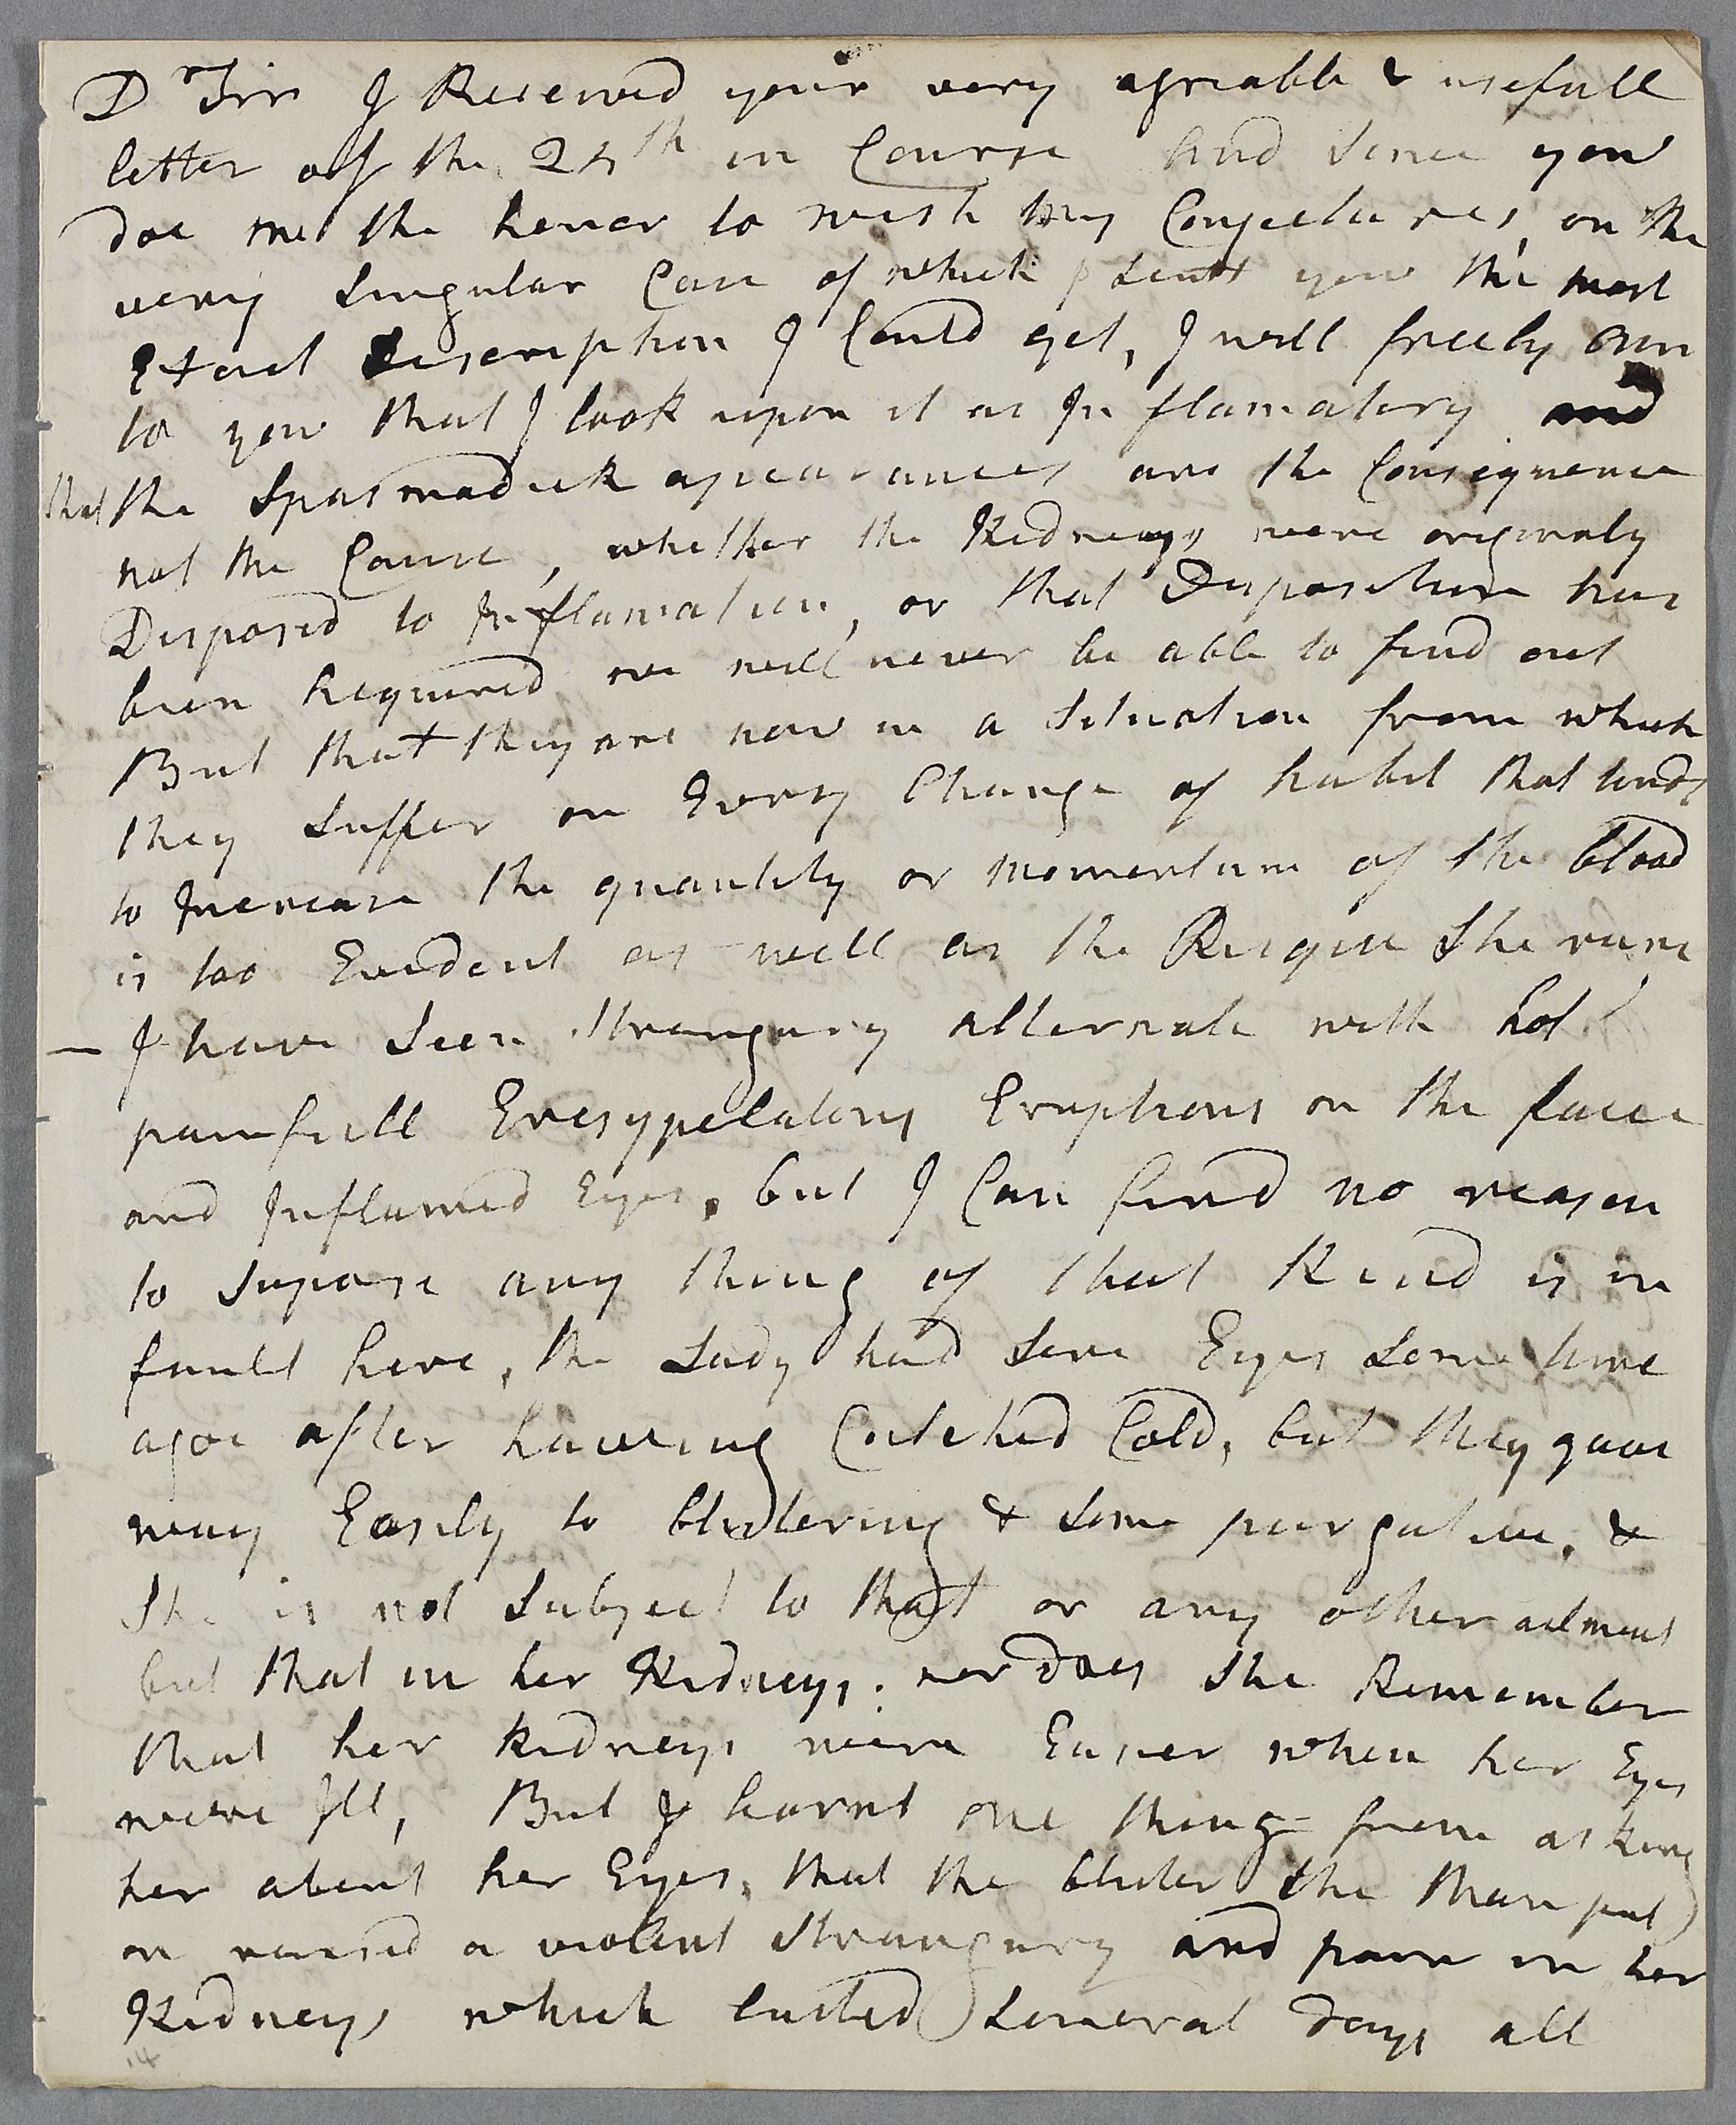 Dr Sir I Receved your very agreable & usefull
letter of the 24th in Course And Since you
doe me the honor to wish my Conjectures, on the
very Singular Case of which I Sent you the most
Exact Discription I Could get, I will freely own
to you that I look upon it as Inflamatory and
that the Spasmodick apearances are the Consequence
not the Cause, whether the Kidneys were originaly
Disposed to Inflamation, or that Disposition has
been Aequired we will never be able to find out
But that they are now in a Situation from which
they Suffer on Every Change of habit that tends
to Increase the quantity or momentum of the blood
is too Evident as well as the Risque She runs
— I have Seen Strangury alternate with hot
painfull Eresypelatous Eruptions on the face
and Inflamed Eyes, but I Can find no reason
to Supose any thing of that Kind is in
fault here, the Lady had Sore Eyes Some time
agoe after haveing Catched Cold, but they gave
way Easily to blistering & Some purgative, &
She is not Subject to that or any other ailment
but that in her Kidneys. nor does She Remember
that her Kidneys were Easier when her Eyes
were Ill, But I learnt one thing from asking
her about her Eyes, that the blister the Man put
on raised a violent Strangury and pain in her
Kidneys which lasted Several days all
14